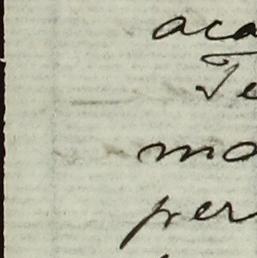 aca
Te
mo
per